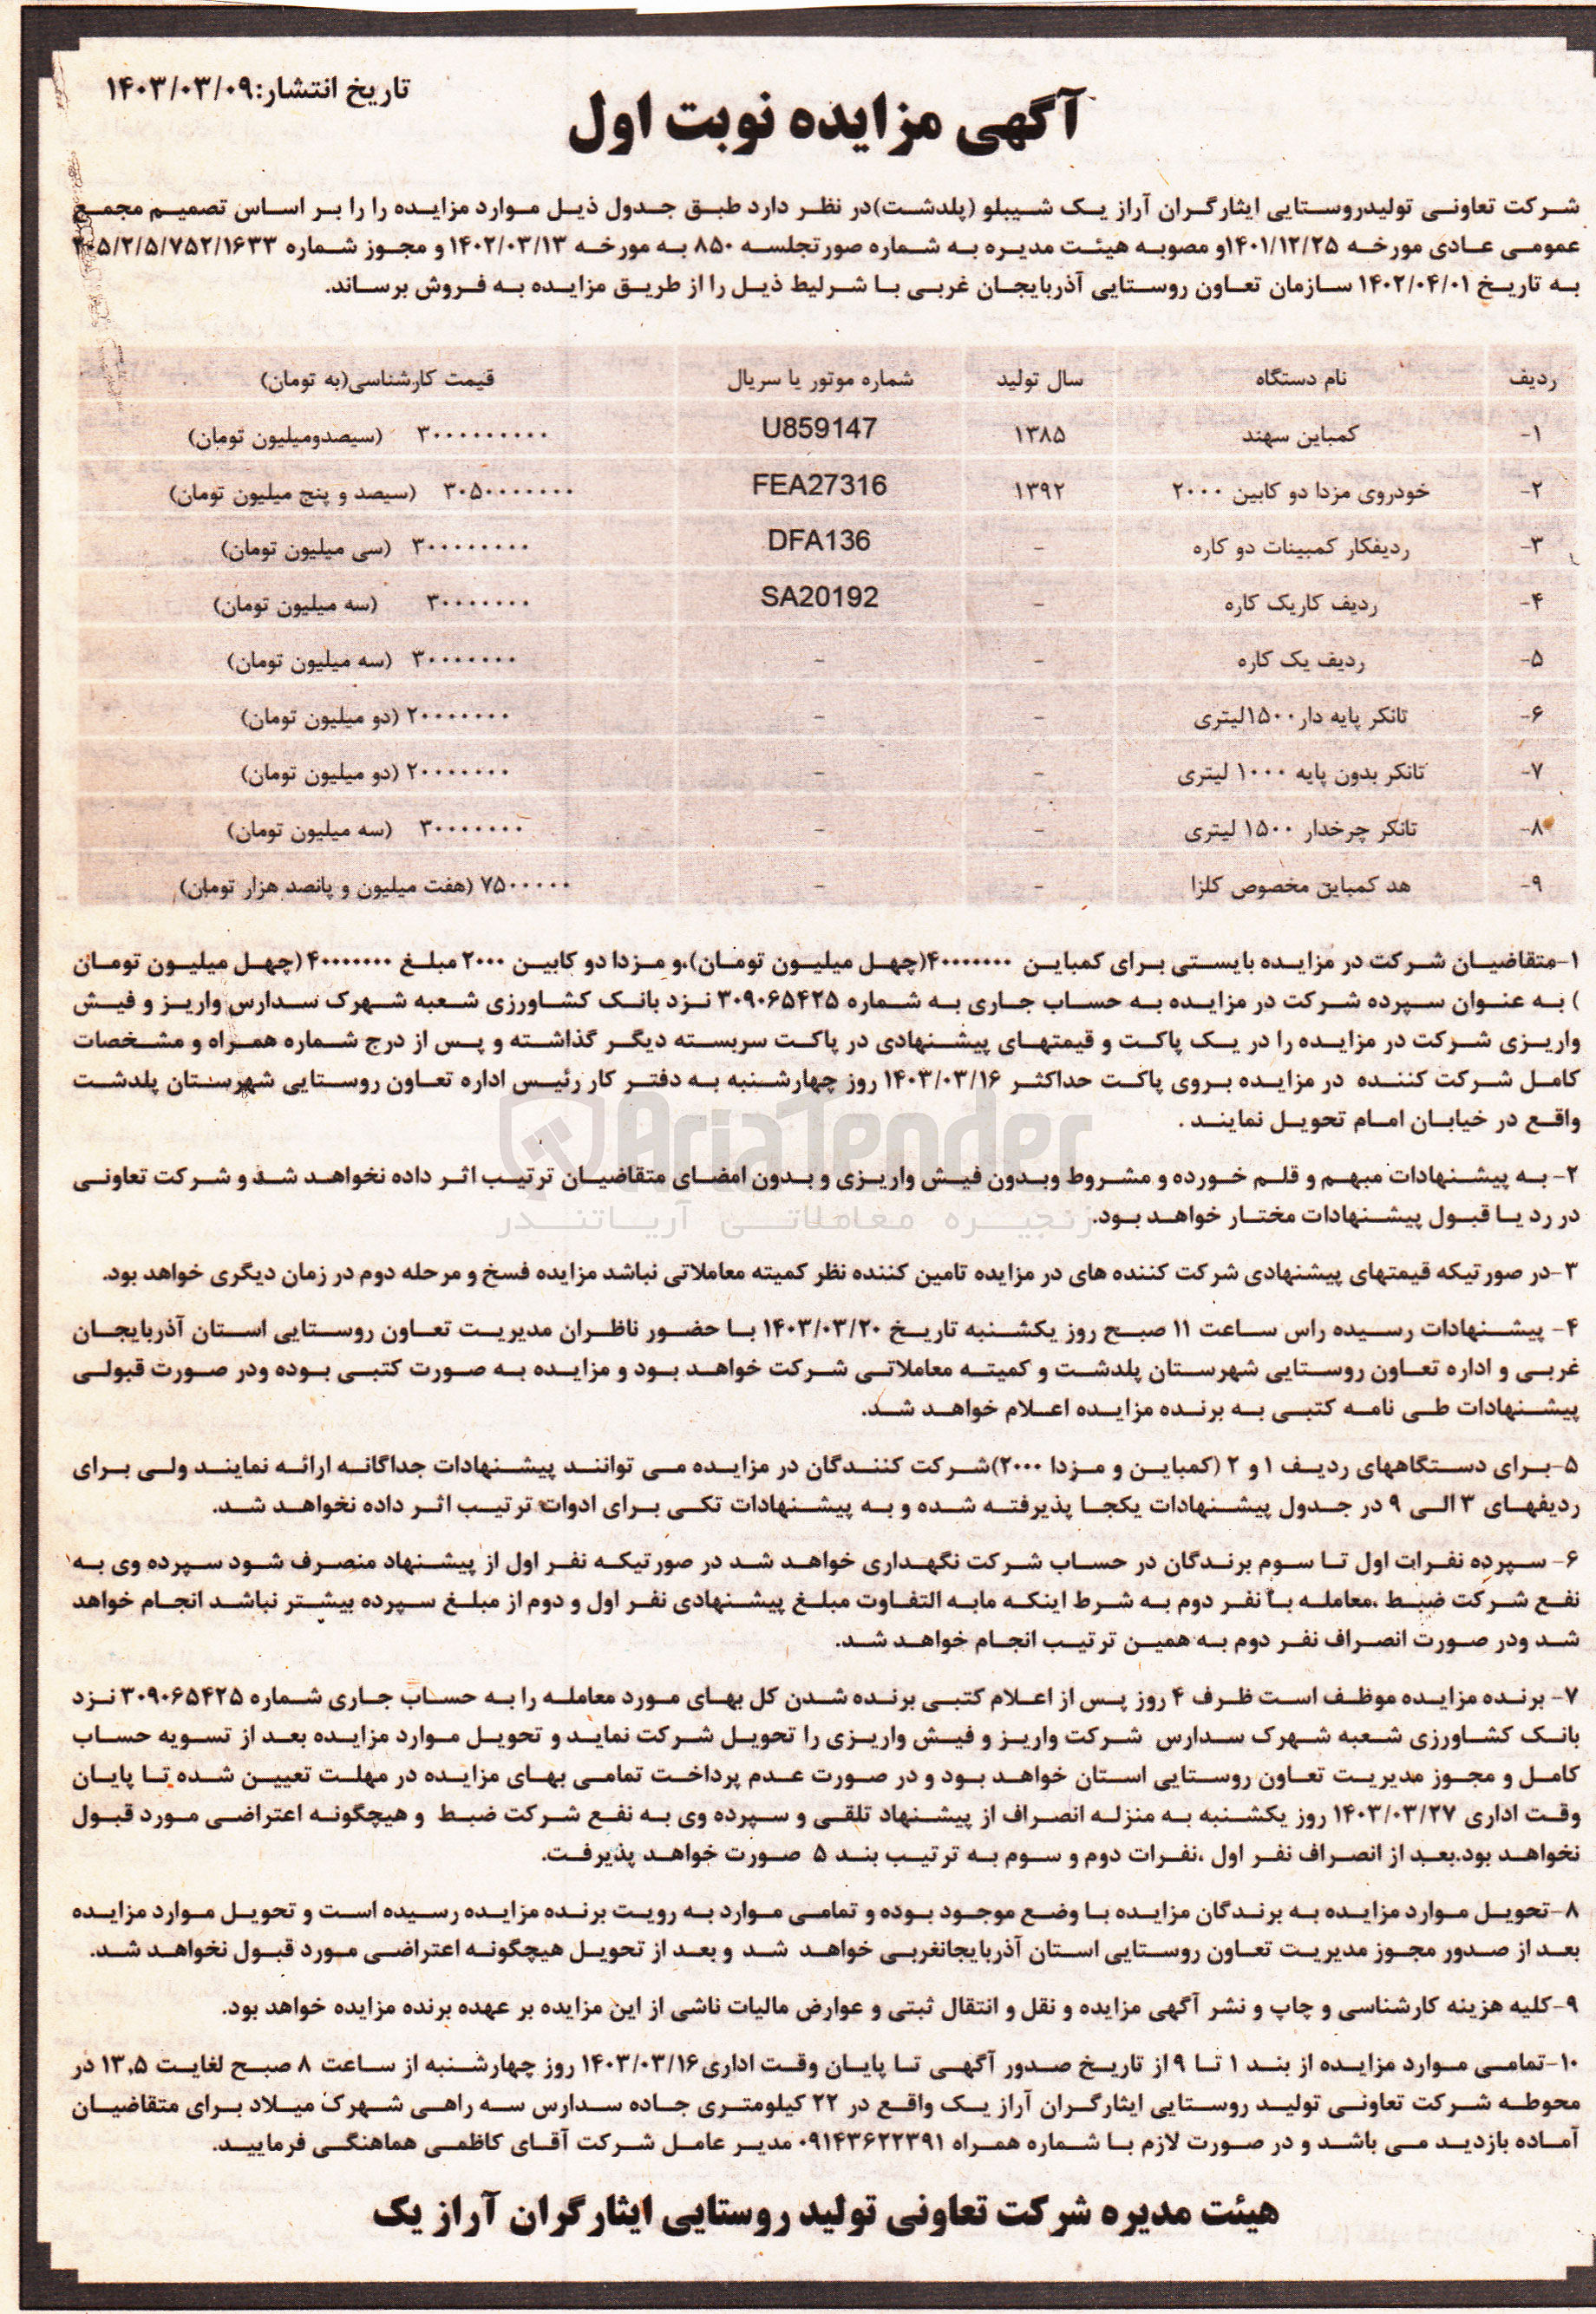 تاریخ انتشار:۱۴۰۳/۰۳/۰۹
آگهی مزایده نوبت اول
شرکت تعاونی تولیدروستایی ایثارگران آراز یک شیبلو (پلدشت)در نظر دارد طبق جدول ذیل موارد مزایده را را بر اساس تصمیم مجمع
عمومی عادی مورخه ۱۴۰۱/۱۲/۲۵و مصوبه هیئت مدیره به شماره صورتجلسه ۸۵۰ به مورخه ۱۴۰۲/۰۳/۱۳ و مجوز شماره
به تاریخ ۱۴۰۲/۰۴/۰۱ سازمان تعاون روستایی آذربایجان غربی با شرلیط ذیل را از طریق مزایده به فروش برساند.
ردیف نام دستگاه سال تولید شماره موتور یا سریال قیمت کارشناسی(به تومان)
۱- کمباین سهند ۱۳۸۵ U859147 ۳۰۰۰۰۰۰۰۰۰ (سیصدومیلیون تومان)
۲- خودروی مزدا دو کابین ۲۰۰۰ ۱۳۹۲ FEA27316 ۳۰۵۰۰۰۰۰۰۰ (سیصد و پنج میلیون تومان)
۳- ردیفکار کمبینات دو کاره - DFA136 ۳۰۰۰۰۰۰۰۰ (سی میلیون تومان)
۴- ردیف کاریک کاره - SA20192 ۳۰۰۰۰۰۰۰ (سه میلیون تومان)
۵- ردیف یک کاره - - ۳۰۰۰۰۰۰۰ (سه میلیون تومان)
۶- تانکر پایه دار۱۵۰۰لیتری - - ۲۰۰۰۰۰۰۰ (دو میلیون تومان)
۷- تانکر بدون پایه ۱۰۰۰ لیتری - - ۲۰۰۰۰۰۰۰ (دو میلیون تومان)
۸- تانکر چرخدار ۱۵۰۰ لیتری - - ۳۰۰۰۰۰۰۰ (سه میلیون تومان)
۹- هد کمباین مخصوص کلزا - - ۷۵۰۰۰۰۰ (هفت میلیون و پانصد هزار تومان)
۱-متقاضیان شرکت در مزایده بایستی برای کمباین ۴۰۰۰۰۰۰۰(چهل میلیون تومان)،و مزدا دو کابین ۲۰۰۰ مبلغ ۴۰۰۰۰۰۰۰ (چهل میلیون تومان
) به عنوان سپرده شرکت در مزایده به حساب جاری به شماره ۳۰۹۰۶۵۴۲۵ نزد بانک کشاورزی شعبه شهرک سدارس واریز و فیش
واریزی شرکت در مزایده را در یک پاکت و قیمتهای پیشنهادی در پاکت سربسته دیگر گذاشته و پس از درج شماره همراه و مشخصات
کامل شرکت کننده در مزایده بروی پاکت حداکثر ۱۴۰۳/۰۳/۱۶ روز چهارشنبه به دفتر کار رئیس اداره تعاون روستایی شهرستان پلدشت
واقع در خیابان امام تحویل نمایند .
AriaTender
۲- به پیشنهادات مبهم و قلم خورده و مشروط وبدون فیش واریزی و بدون امضای متقاضیان ترتیب اثر داده نخواهد شد و شرکت تعاونی
در رد یا قبول پیشنهادات مختار خواهد بود.
زنجیره معاملاتی آریاتندر
۳-در صورتیکه قیمتهای پیشنهادی شرکت کننده های در مزایده تامین کننده نظر کمیته معاملاتی نباشد مزایده فسخ و مرحله دوم در زمان دیگری خواهد بود.
۴- پیشنهادات رسیده راس ساعت ۱۱ صبح روز یکشنبه تاریخ ۱۴۰۳/۰۳/۲۰ با حضور ناظران مدیریت تعاون روستایی استان آذربایجان
غربی و اداره تعاون روستایی شهرستان پلدشت و کمیته معاملاتی شرکت خواهد بود و مزایده به صورت کتبی بوده ودر صورت قبولی
پیشنهادات طی نامه کتبی به برنده مزایده اعلام خواهد شد.
۵-برای دستگاههای ردیف ۱ و ۲ (کمباین و مزدا ۲۰۰۰)شرکت کنندگان در مزایده می توانند پیشنهادات جداگانه ارائه نمایند ولی برای
ردیفهای ۳ الی ۹ در جدول پیشنهادات یکجا پذیرفته شده و به پیشنهادات تکی برای ادوات ترتیب اثر داده نخواهد شد.
۶- سپرده نفرات اول تا سوم برندگان در حساب شرکت نگهداری خواهد شد در صورتیکه نفر اول از پیشنهاد منصرف شود سپرده وی به
نفع شرکت ضبط ،معامله با نفر دوم به شرط اینکه مابه التفاوت مبلغ پیشنهادی نفر اول و دوم از مبلغ سپرده بیشتر نباشد انجام خواهد
شد ودر صورت انصراف نفر دوم به همین ترتیب انجام خواهد شد.
۷- برنده مزایده موظف است ظرف ۴ روز پس از اعلام کتبی برنده شدن کل بهای مورد معامله را به حساب جاری شماره ۳۰۹۰۶۵۴۲۵ نزد
بانک کشاورزی شعبه شهرک سدارس شرکت واریز و فیش واریزی را تحویل شرکت نماید و تحویل موارد مزایده بعد از تسویه حساب
کامل و مجوز مدیریت تعاون روستایی استان خواهد بود و در صورت عدم پرداخت تمامی بهای مزایده در مهلت تعیین شده تا پایان
وقت اداری ۱۴۰۳/۰۳/۲۷ روز یکشنبه به منزله انصراف از پیشنهاد تلقی و سپرده وی به نفع شرکت ضبط و هیچگونه اعتراضی مورد قبول
نخواهد بود.بعد از انصراف نفر اول ،نفرات دوم و سوم به ترتیب بند ۵ صورت خواهد پذیرفت.
۸-تحویل موارد مزایده به برندگان مزایده با وضع موجود بوده و تمامی موارد به رویت برنده مزایده رسیده است و تحویل موارد مزایده
بعد از صدور مجوز مدیریت تعاون روستایی استان آذربایجانغربی خواهد شد و بعد از تحویل هیچگونه اعتراضی مورد قبول نخواهد شد.
۹-کلیه هزینه کارشناسی و چاپ و نشر آگهی مزایده و نقل و انتقال ثبتی و عوارض مالیات ناشی از این مزایده بر عهده برنده مزایده خواهد بود.
۱۰-تمامی موارد مزایده از بند ۱ تا ۹ از تاریخ صدور آگهی تا پایان وقت اداری۱۴۰۳/۰۳/۱۶ روز چهارشنبه از ساعت ۸ صبح لغایت ۱۳,۵ در
محوطه شرکت تعاونی تولید روستایی ایثارگران آراز یک واقع در ۲۲ کیلومتری جاده سدارس سه راهی شهرک میلاد برای متقاضیان
آماده بازدید می باشد و در صورت لازم با شماره همراه ۰۹۱۴۳۶۲۲۳۹۱ مدیر عامل شرکت آقای کاظمی هماهنگی فرمایید.
هیئت مدیره شرکت تعاونی تولید روستایی ایثارگران آراز یک